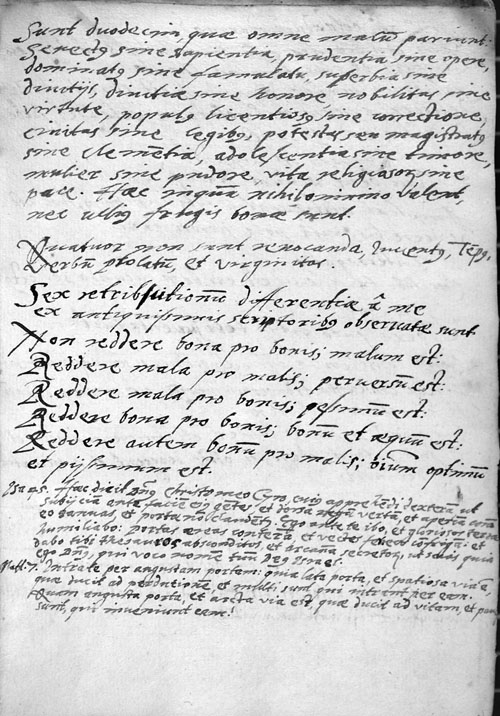 Sunt duodecim, quae omne malū pariunt.
Senectꝰ sine sapientia, prudentia sine opere,
dominatꝰ sine famulatu, superbia sine
divitijs, divitiae sine honore, nobilitas sine
virtute, populꝰ licentiosꝰ sine correctione,
civitas sine legibꝰ, potestas seu magistratꝰ
sine clemētia, adolescentia sine timore,
mulier sine pudore, vita religiosor. sine
pace. Haec inquā nihilominino valent,
nec ulliꝰ frugis bonae sunt.
Quatuor non sunt revocanda, Iuventꝰ, Tēpꝰ,
Verbū prolatū, et virginitas.
Sex retributionū differentiae à me
ex antiquissimis scriptoribꝰ observatae sunt
Non reddere bona pro bonis; malum est:
Reddere mala pro malis; perversū est:
Reddere mala pro bonis; pessimū est:
Reddere bona pro bonis; bonū et aequū est:
Reddere autem bonū pro malis; oium optimū
et pijssimum est.
Isa 45. Haec dicit Dnꝰ Christo meo Cyro, cuiꝰ appre⁠hēdi dexterā ut
subijciā ante faciē eiꝰ gētes, et dorsa regū vertā, et aperiā corā
eo ianuas, et portae nō claudētr. Ego ante te ibo, et gloriosos terrae
humiliabo: portas aereas conterā, et vectes ferreos cōfringā: et
dabo tibi thesauros absconditos, et arcana secretorū, ut scias quia
ego Dnꝰ, qui voco nomen tuū Deꝰ Israel.
Matt. 7. Intrate per angustam portam: quia lata porta, et spatiosa via ē,
quae ducit ad perditionē, et multi sunt qui intrent per eam.
Quam angusta porta, et arcta via est, quae ducit ad vitam, et pauci
sunt, qui inveniunt eam!